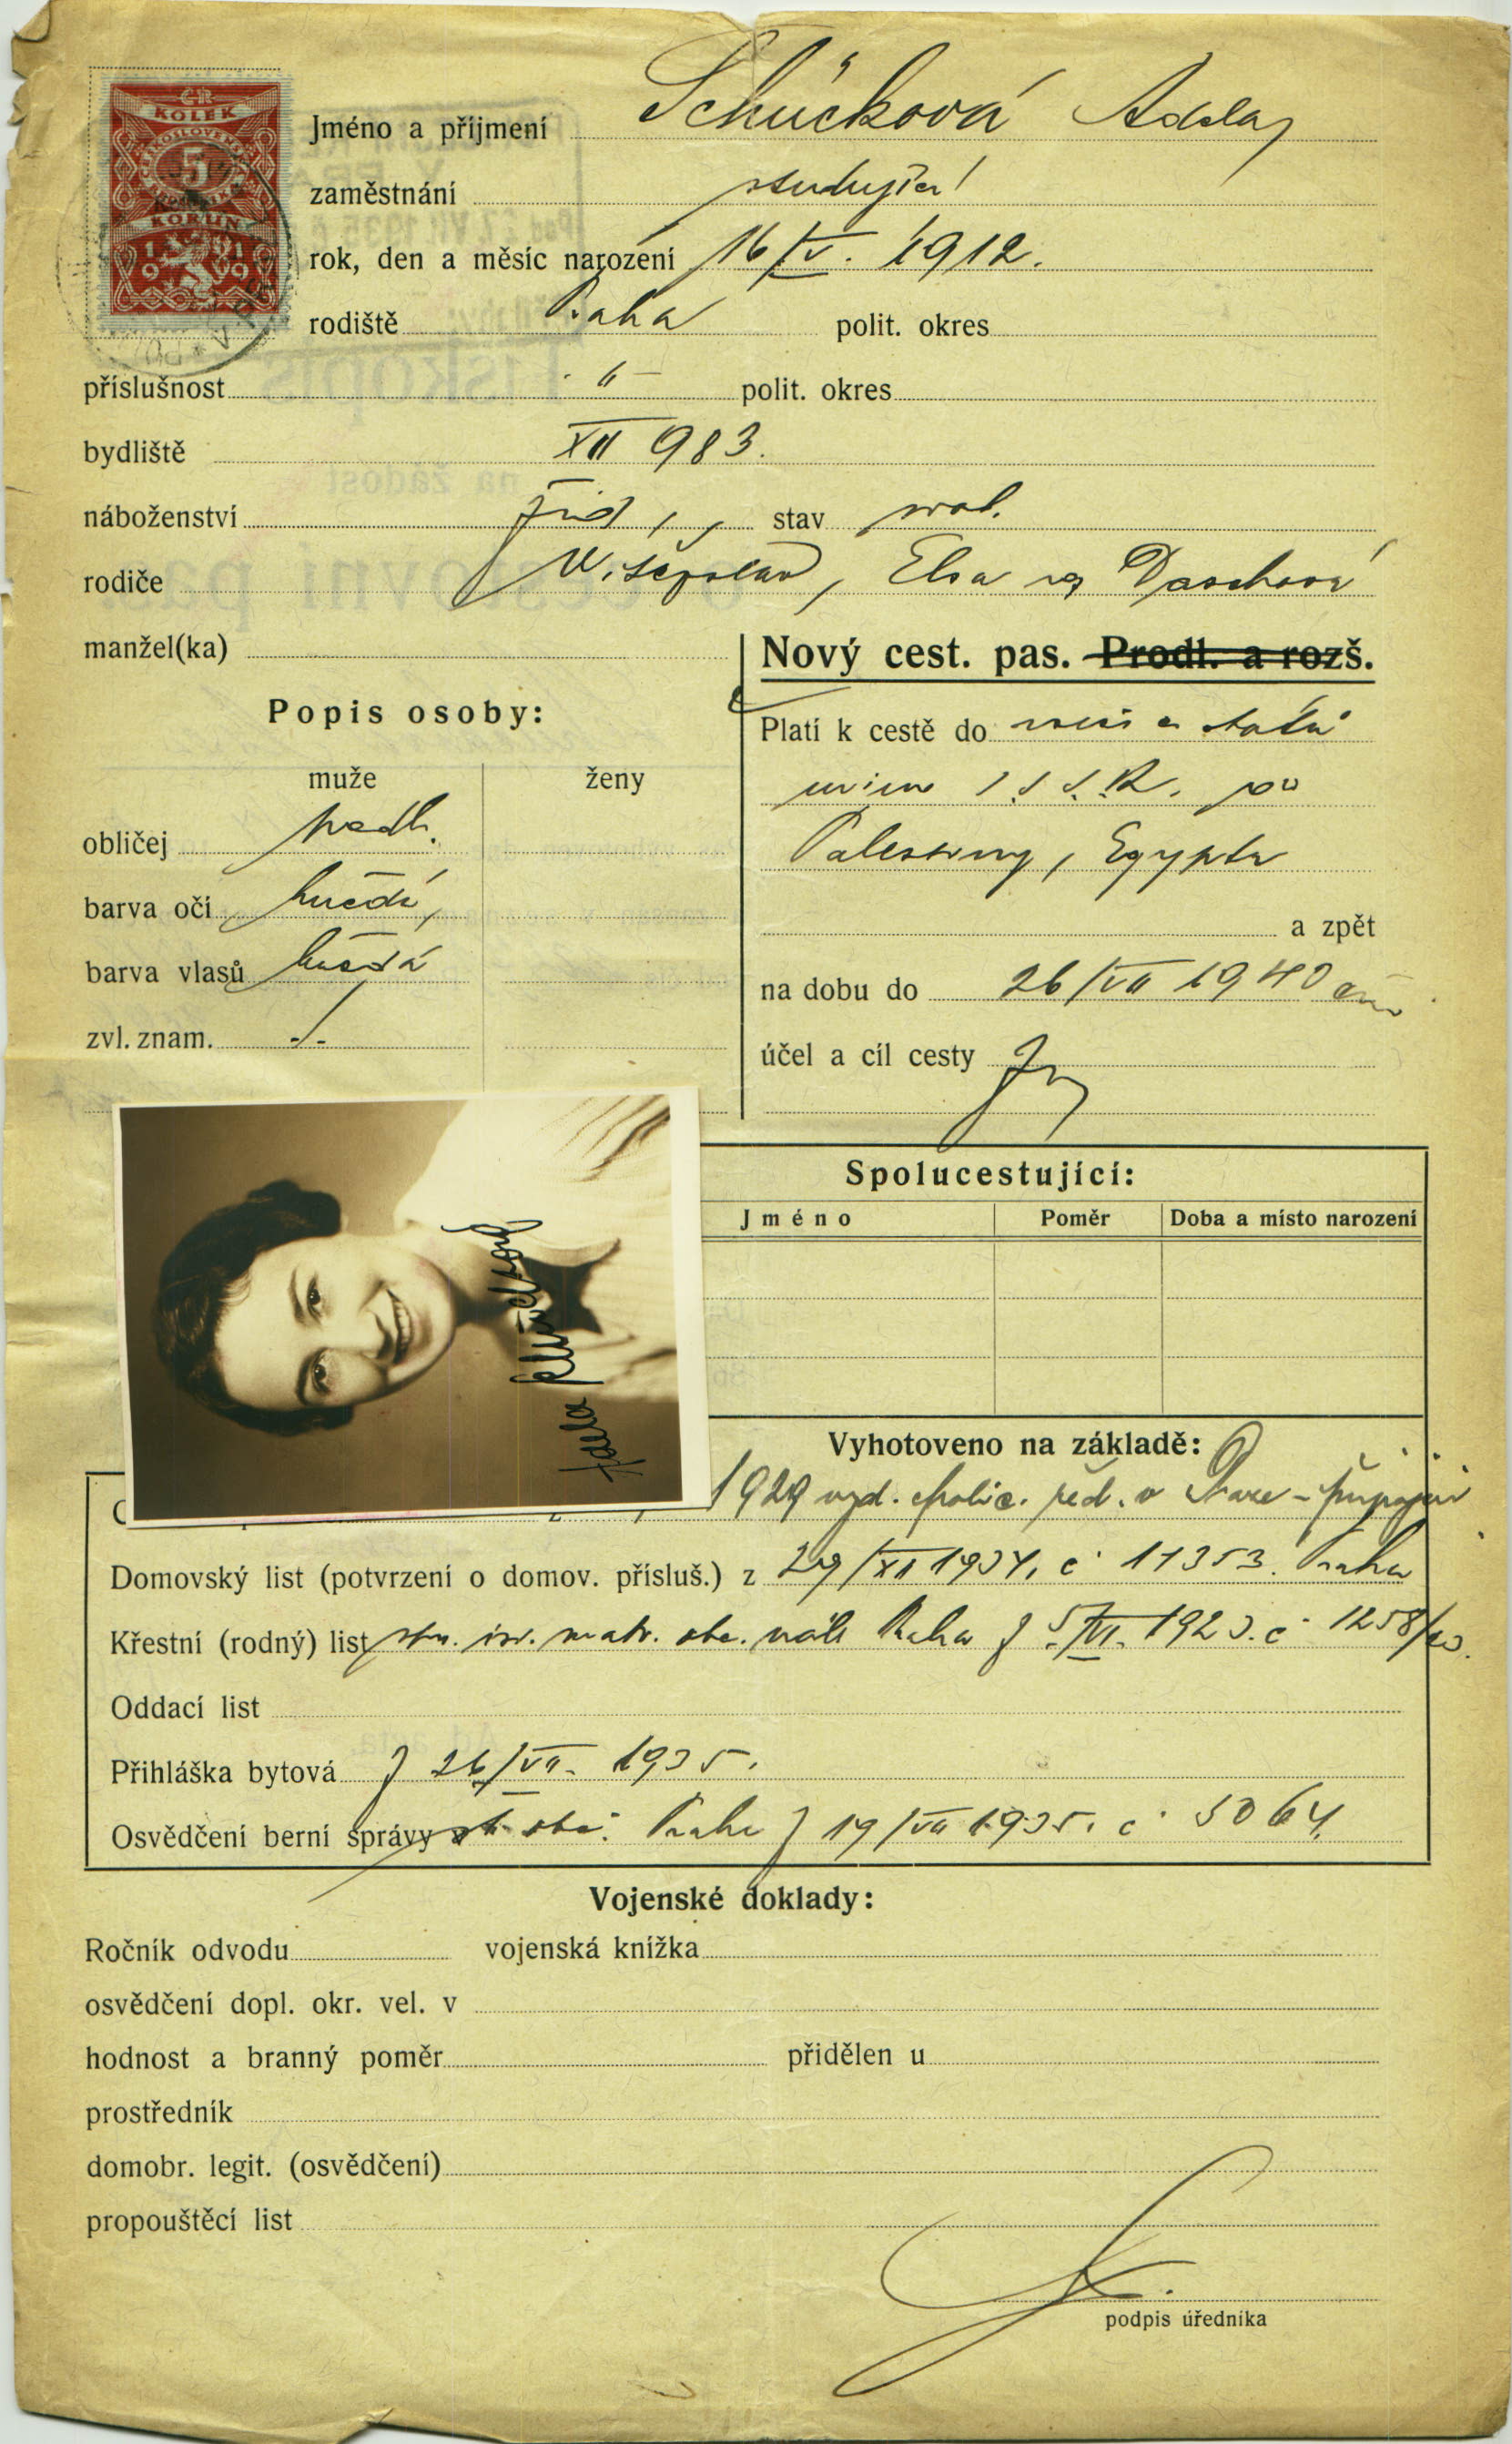 ČR
KOLEK
ČESKOSLOVENSKÁ
5
KORUN
1919
Jméno a příjmení Schücková Adela
zaměstnání studující
rok, den a měsíc narození 16/V. 1912.
rodiště Praha polit. okres
příslušnost " polit. okres
bydliště XII 983.
náboženství žid., stav svob.
rodiče Vítězslav, Elsa roz
manžel(ka)
Nový cest. pas. Prodl. a rozš.
Popis osoby:
muže ženy
obličej podl.
barva očí hnědé
barva vlasů hnědá
zvl. znam. ./.
Platí k cestě do všech států
mimo S.S.S.R. po
Palestiny, Egypta
a zpět
na dobu do 26/VII 1940
účel a cíl cesty
Spolucestující:
Jméno Poměr Doba a místo narození
Vyhotoveno na základě:
1929 vyd. polic. řed. v Praze - připojen
Domovský list (potvrzení o domov. přísluš.) z 29/XII 1934. č 11353. Praha
Křestní (rodný) list isr. matr. obc. nál. Praha z 5/VI. 1923. č 1258/23.
Oddací list
Přihláška bytová z 26/VII. 1935.
Osvědčení berní správy Praha z 19/VII 1935. č 5064.
Vojenské doklady:
Ročník odvodu vojenská knížka
osvědčení dopl. okr. vel. v
hodnost a branný poměr přidělen u
prostředník
domobr. legit. (osvědčení)
propouštěcí list
podpis úředníka